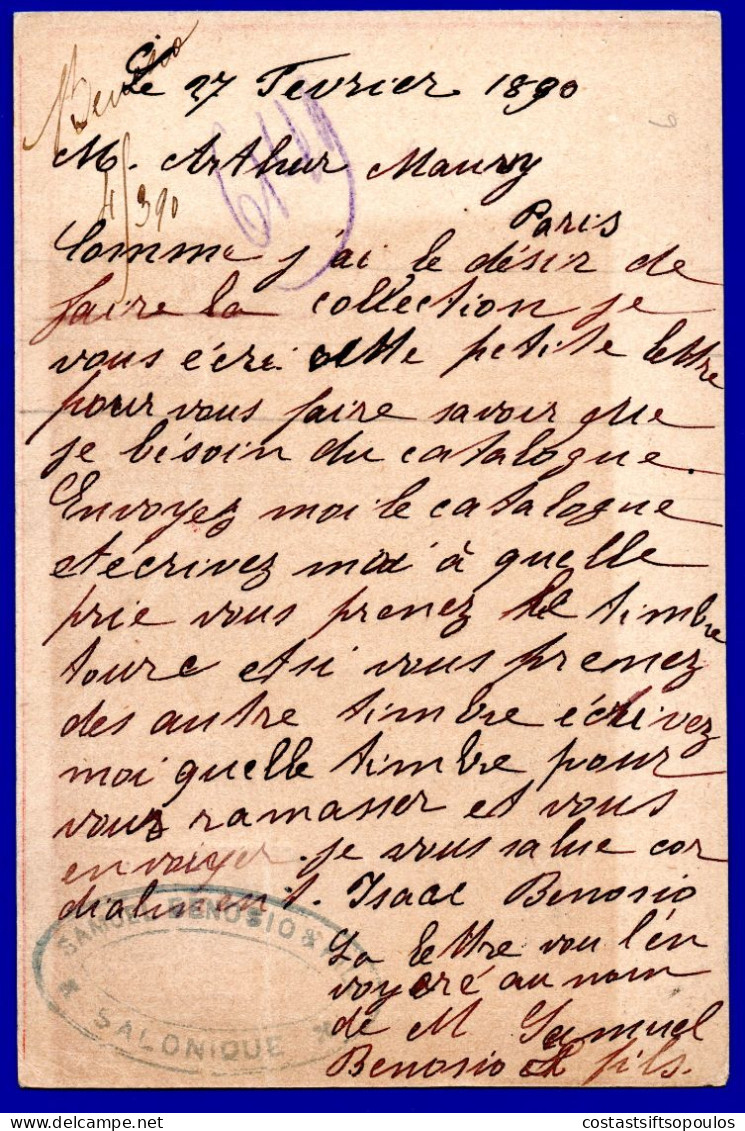 Le 27 Fevrier 1890
M. Arthur Maury
4/3 90
Paris
Comme j'ai le désir de
faire la collection je
vous écri cette petite lettre
pour vous faire savoir que
je bésoin du catalogue.
Envoyez moi le catalogue
et écrivez moi à quelle
prie vous prenez le timbre
tourc et si vous prenez
des autre timbre écrivez
moi quelle timbre pour
vous ramasser et vous
envoiyer. je vous salue cor
dialment. Isaac Benosio
La lettre vou l'en
voyeré au nom
de M Samuel
Benosio & fils.
SAMUEL BENOSIO & FILS
SALONIQUE
costastsiftsopoulos